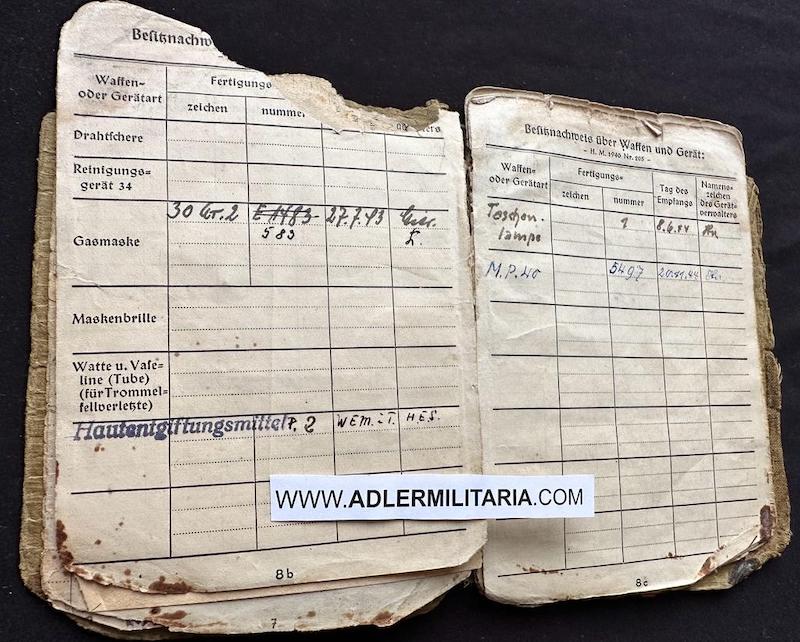 Besitznachw
Waffen-
oder Gerätart
Fertigungs
zeichen
nummer
Drahtschere
Reinigungs-
gerät 34
Gasmaske
30 Gr. 2 E 1483 27.7.43
583
Maskenbrille
Watte u. Vase-
line (Tube)
(für Trommel-
fellverletzte)
Hautentgiftungsmittel
8b
7
Besitznachweis über Waffen und Gerät:
– H. M. 1940 Nr. 205 –
Waffen-
oder Gerätart
Fertigungs-
zeichen
nummer
Tag des
Empfangs
Namens-
zeichen
des Gerät-
verwalters
Taschen-
lampe
1 8.6.44
M.P. 40 5497
8c
WWW.ADLERMILITARIA.COM